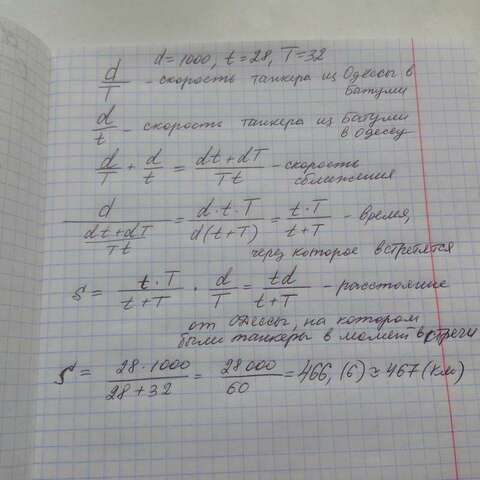 d = 1000, t = 28, T = 32
d/T - скорость танкера из Одессы в
Батуми
d/t - скорость танкера из Батуми
в Одессу
d/T + d/t = (dt + dT)/(Tt) - скорость
сближения
d/((dt + dT)/(Tt)) = (d · t · T)/(d(t + T)) = (t · T)/(t + T) - время,
через которое встретятся
S = (t · T)/(t + T) · d/T = td/(t + T) - расстояние
от Одессы, на котором
были танкеры в момент встречи
S = (28 · 1000)/(28 + 32) = 28000/60 = 466,(6) ≈ 467 (км)